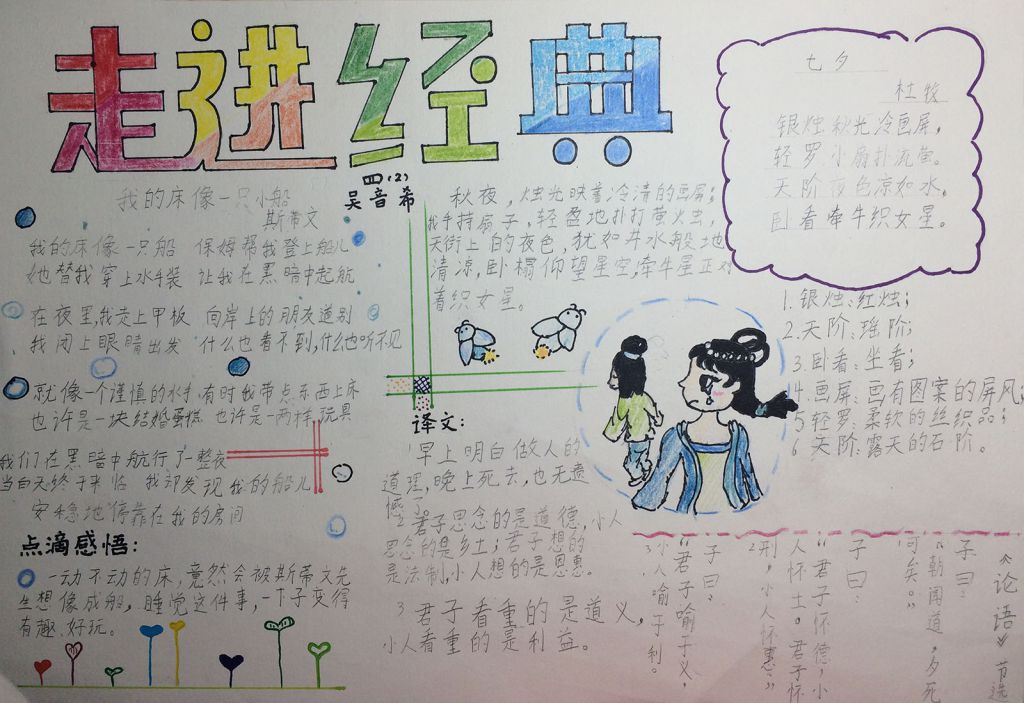 走进经典
四(2)
吴音希
我的床像一只小船
斯蒂文
我的床像一只船 保姆帮我登上船儿
她替我穿上水手装 让我在黑暗中起航
在夜里,我走上甲板 向岸上的朋友道别
我闭上眼睛出发 什么也看不到,什么也听不见
就像一个谨慎的水手,有时我带点东西上床
也许是一块结婚蛋糕 也许是一两样玩具
我们在黑暗中航行了一整夜
当白天终于来临 我却发现我的船儿
安稳地停靠在我的房间
点滴感悟:
一动不动的床,竟然会被斯蒂文先
生想像成船,睡觉这件事,一下子变得
有趣、好玩。
秋夜,烛光映着冷清的画屏;
我手持扇子,轻盈地扑打萤火虫,
天街上的夜色,犹如井水般地
清凉,卧榻仰望星空,牵牛星正对
着织女星。
七夕
杜牧
银烛秋光冷画屏,
轻罗小扇扑流萤。
天阶夜色凉如水,
卧看牵牛织女星。
1.银烛:红烛;
2.天阶:瑶阶;
3.卧看:坐看;
4.画屏:画有图案的屏风;
5轻罗:柔软的丝织品;
6天阶:露天的石阶。
译文:
早上明白做人的
道理,晚上死去,也无遗
憾了。
2君子思念的是道德,小人
思念的是乡土;君子想的
是法制,小人想的是恩惠。
3君子看重的是道义,
小人看重的是利益。
《论语》节选
子曰:
“朝闻道,夕死
可矣。”
子曰:
“君子怀德,小
人怀土。君子怀
刑,小人怀惠。”
子曰:
“君子喻于义,
小人喻于利。